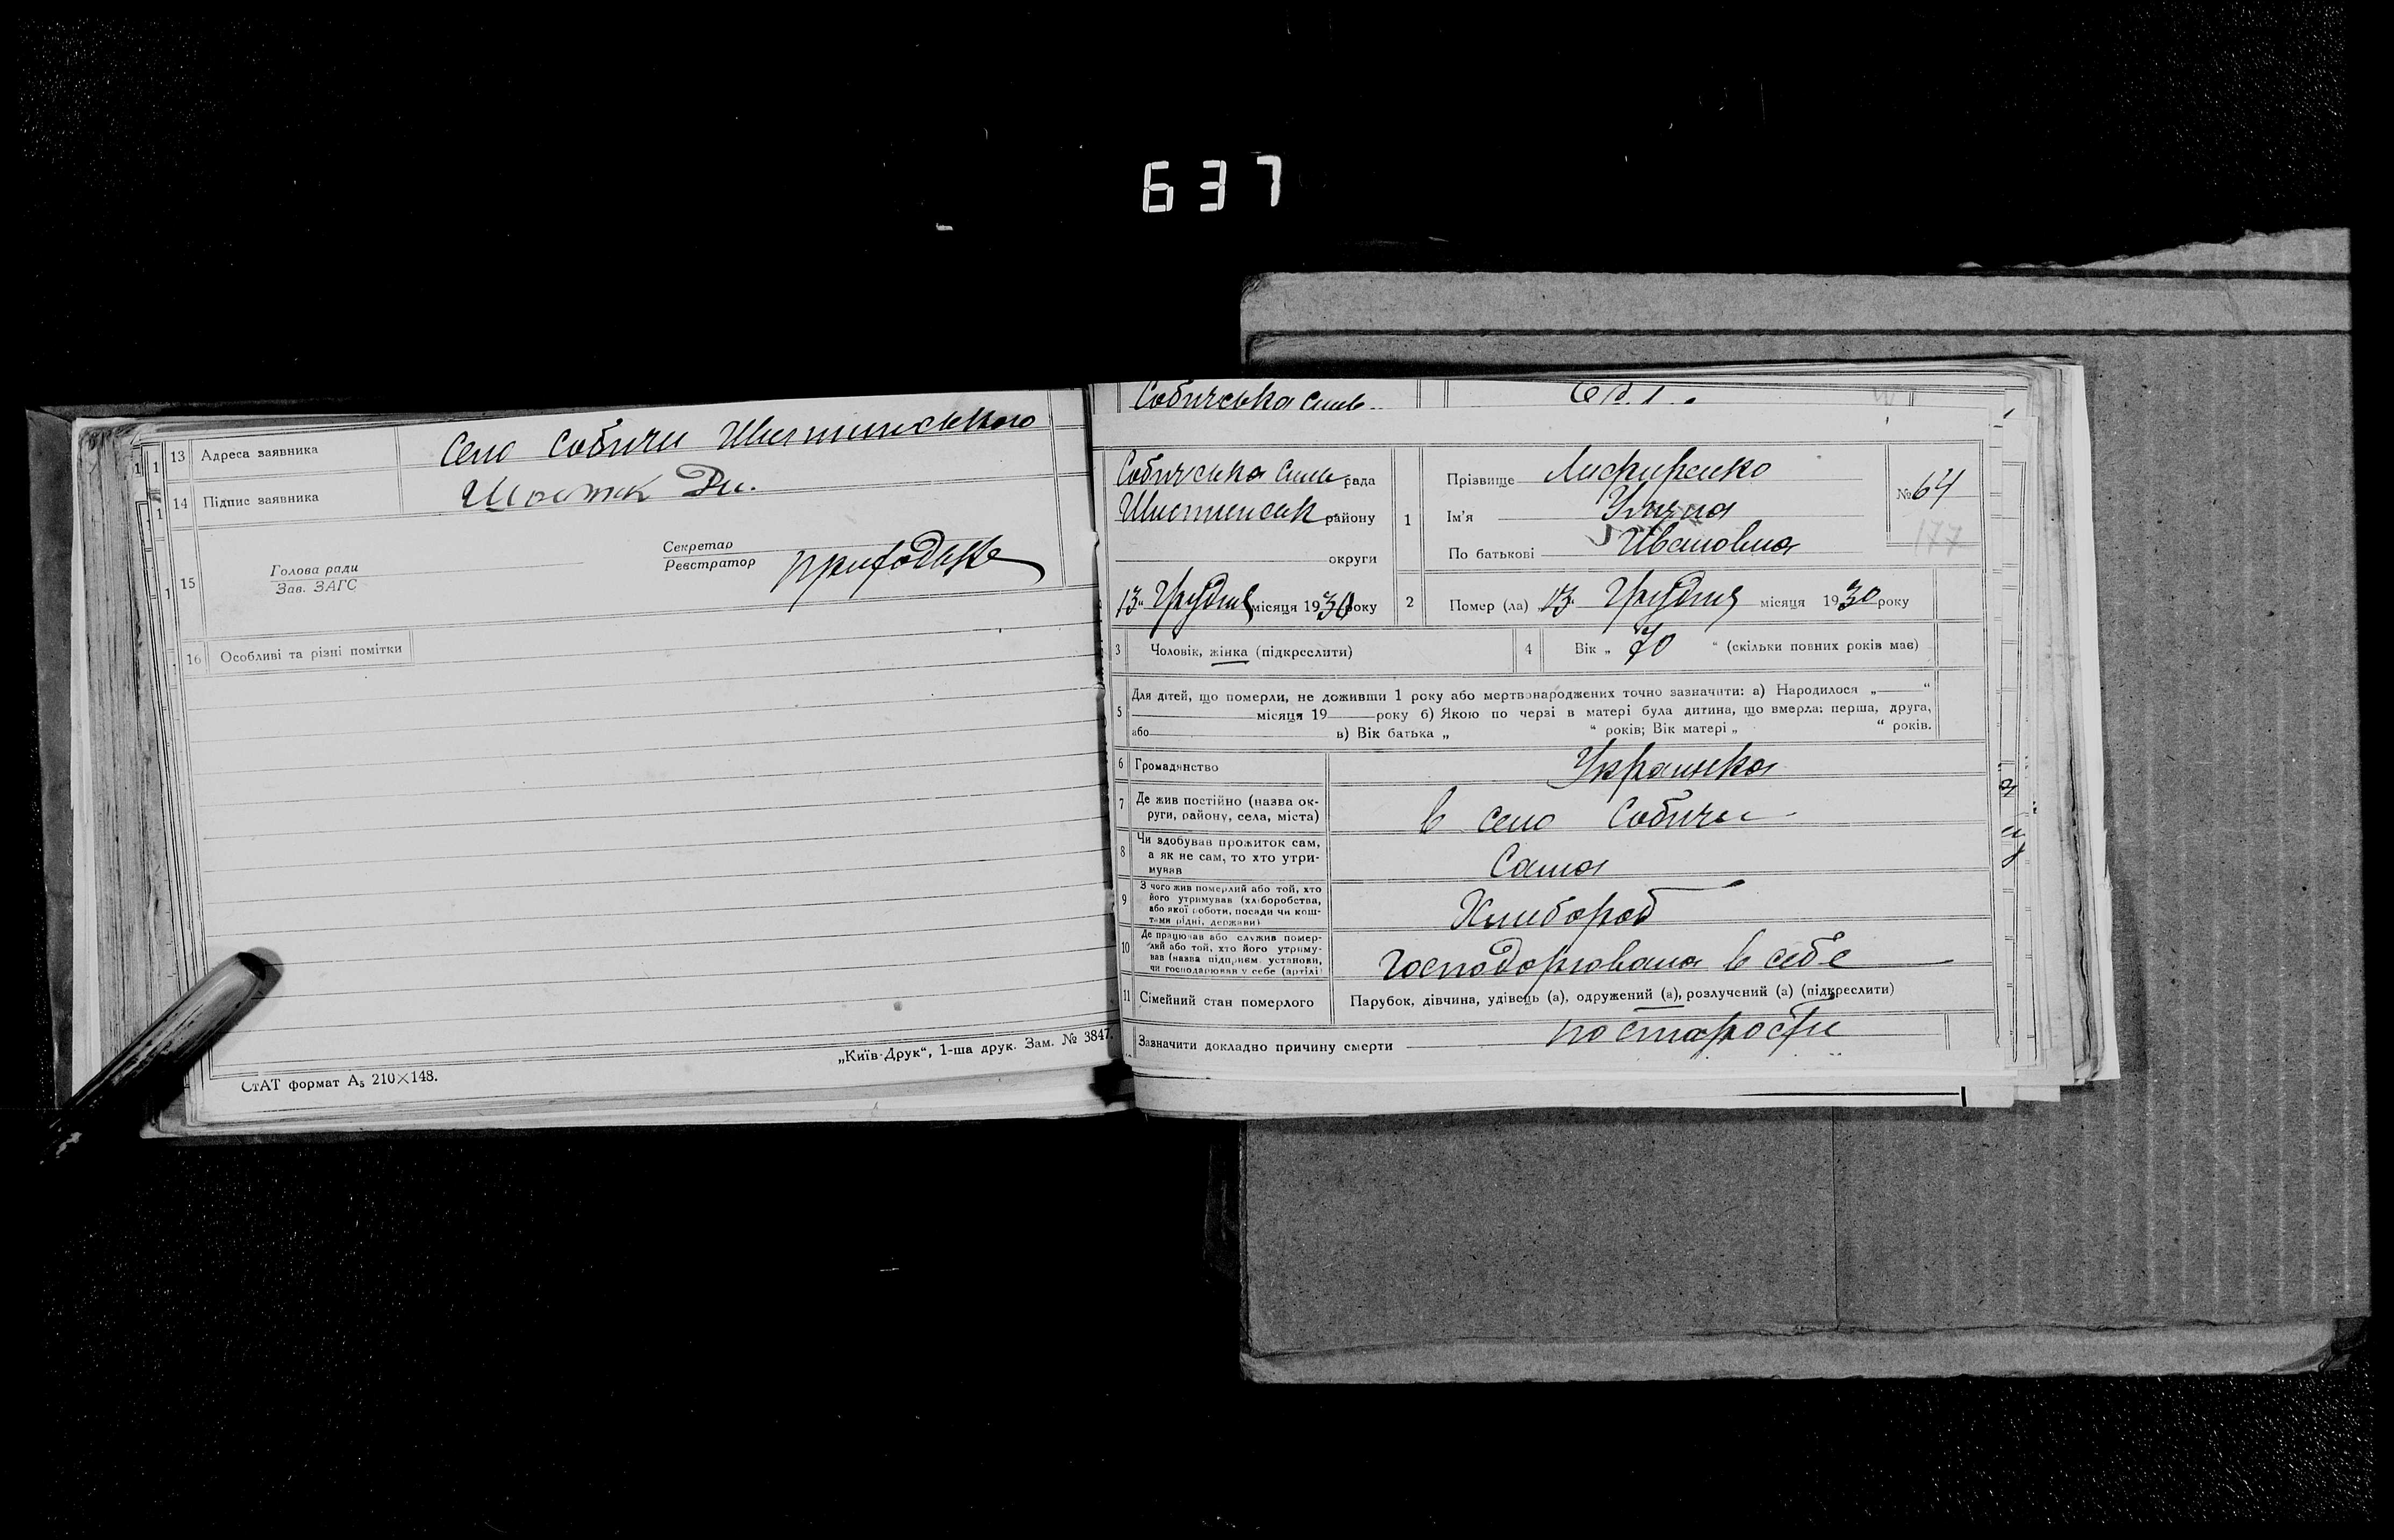 637
13 Адреса заявника Село Собичи Шостинського
14 Підпис заявника
15 Голова ради
Зав. ЗАГС
Секретар
Реєстратор
16 Особливі та різні помітки
„Київ-Друк“, 1-ша друк. Зам. № 3847.
СтАТ формат А₅ 210×148.
Собичська силь
Собичська силь рада
Шостинськ району
округи
1 Прізвище
Ім'я Улича
По батькові Ивановна
№ 64
177
13 Грудня місяця 1930 року
2 Помер (ла) „13 Грудня місяця 1930 року
3 Чоловік, жінка (підкреслити)
4 Вік „ 70 “ (скільки повних років має)
5 Для дітей, що померли, не доживши 1 року або мертвонароджених точно зазначити: а) Народилося „ “
місяця 19 року б) Якою по черзі в матері була дитина, що вмерла: перша, друга,
або в) Вік батька „ “ років; Вік матері „ “ років.
6 Громадянство Украинка
7 Де жив постійно (назва округи, району, села, міста) в село Собичи
8 Чи здобував прожиток сам, а як не сам, то хто утримував Сама
9 З чого жив померлий або той, хто його утримував (хліборобства, або якої роботи, посади чи коштами рідні, держави) Хлибороб
10 Де працював або служив померлий або той, хто його утримував (назва підприєм. установи, чи господарював у себе (артілі) Господорювала в себе
11 Сімейний стан померлого Парубок, дівчина, удівець (а), одружений (а), розлучений (а) (підкреслити)
Зазначити докладно причину смерти по старости